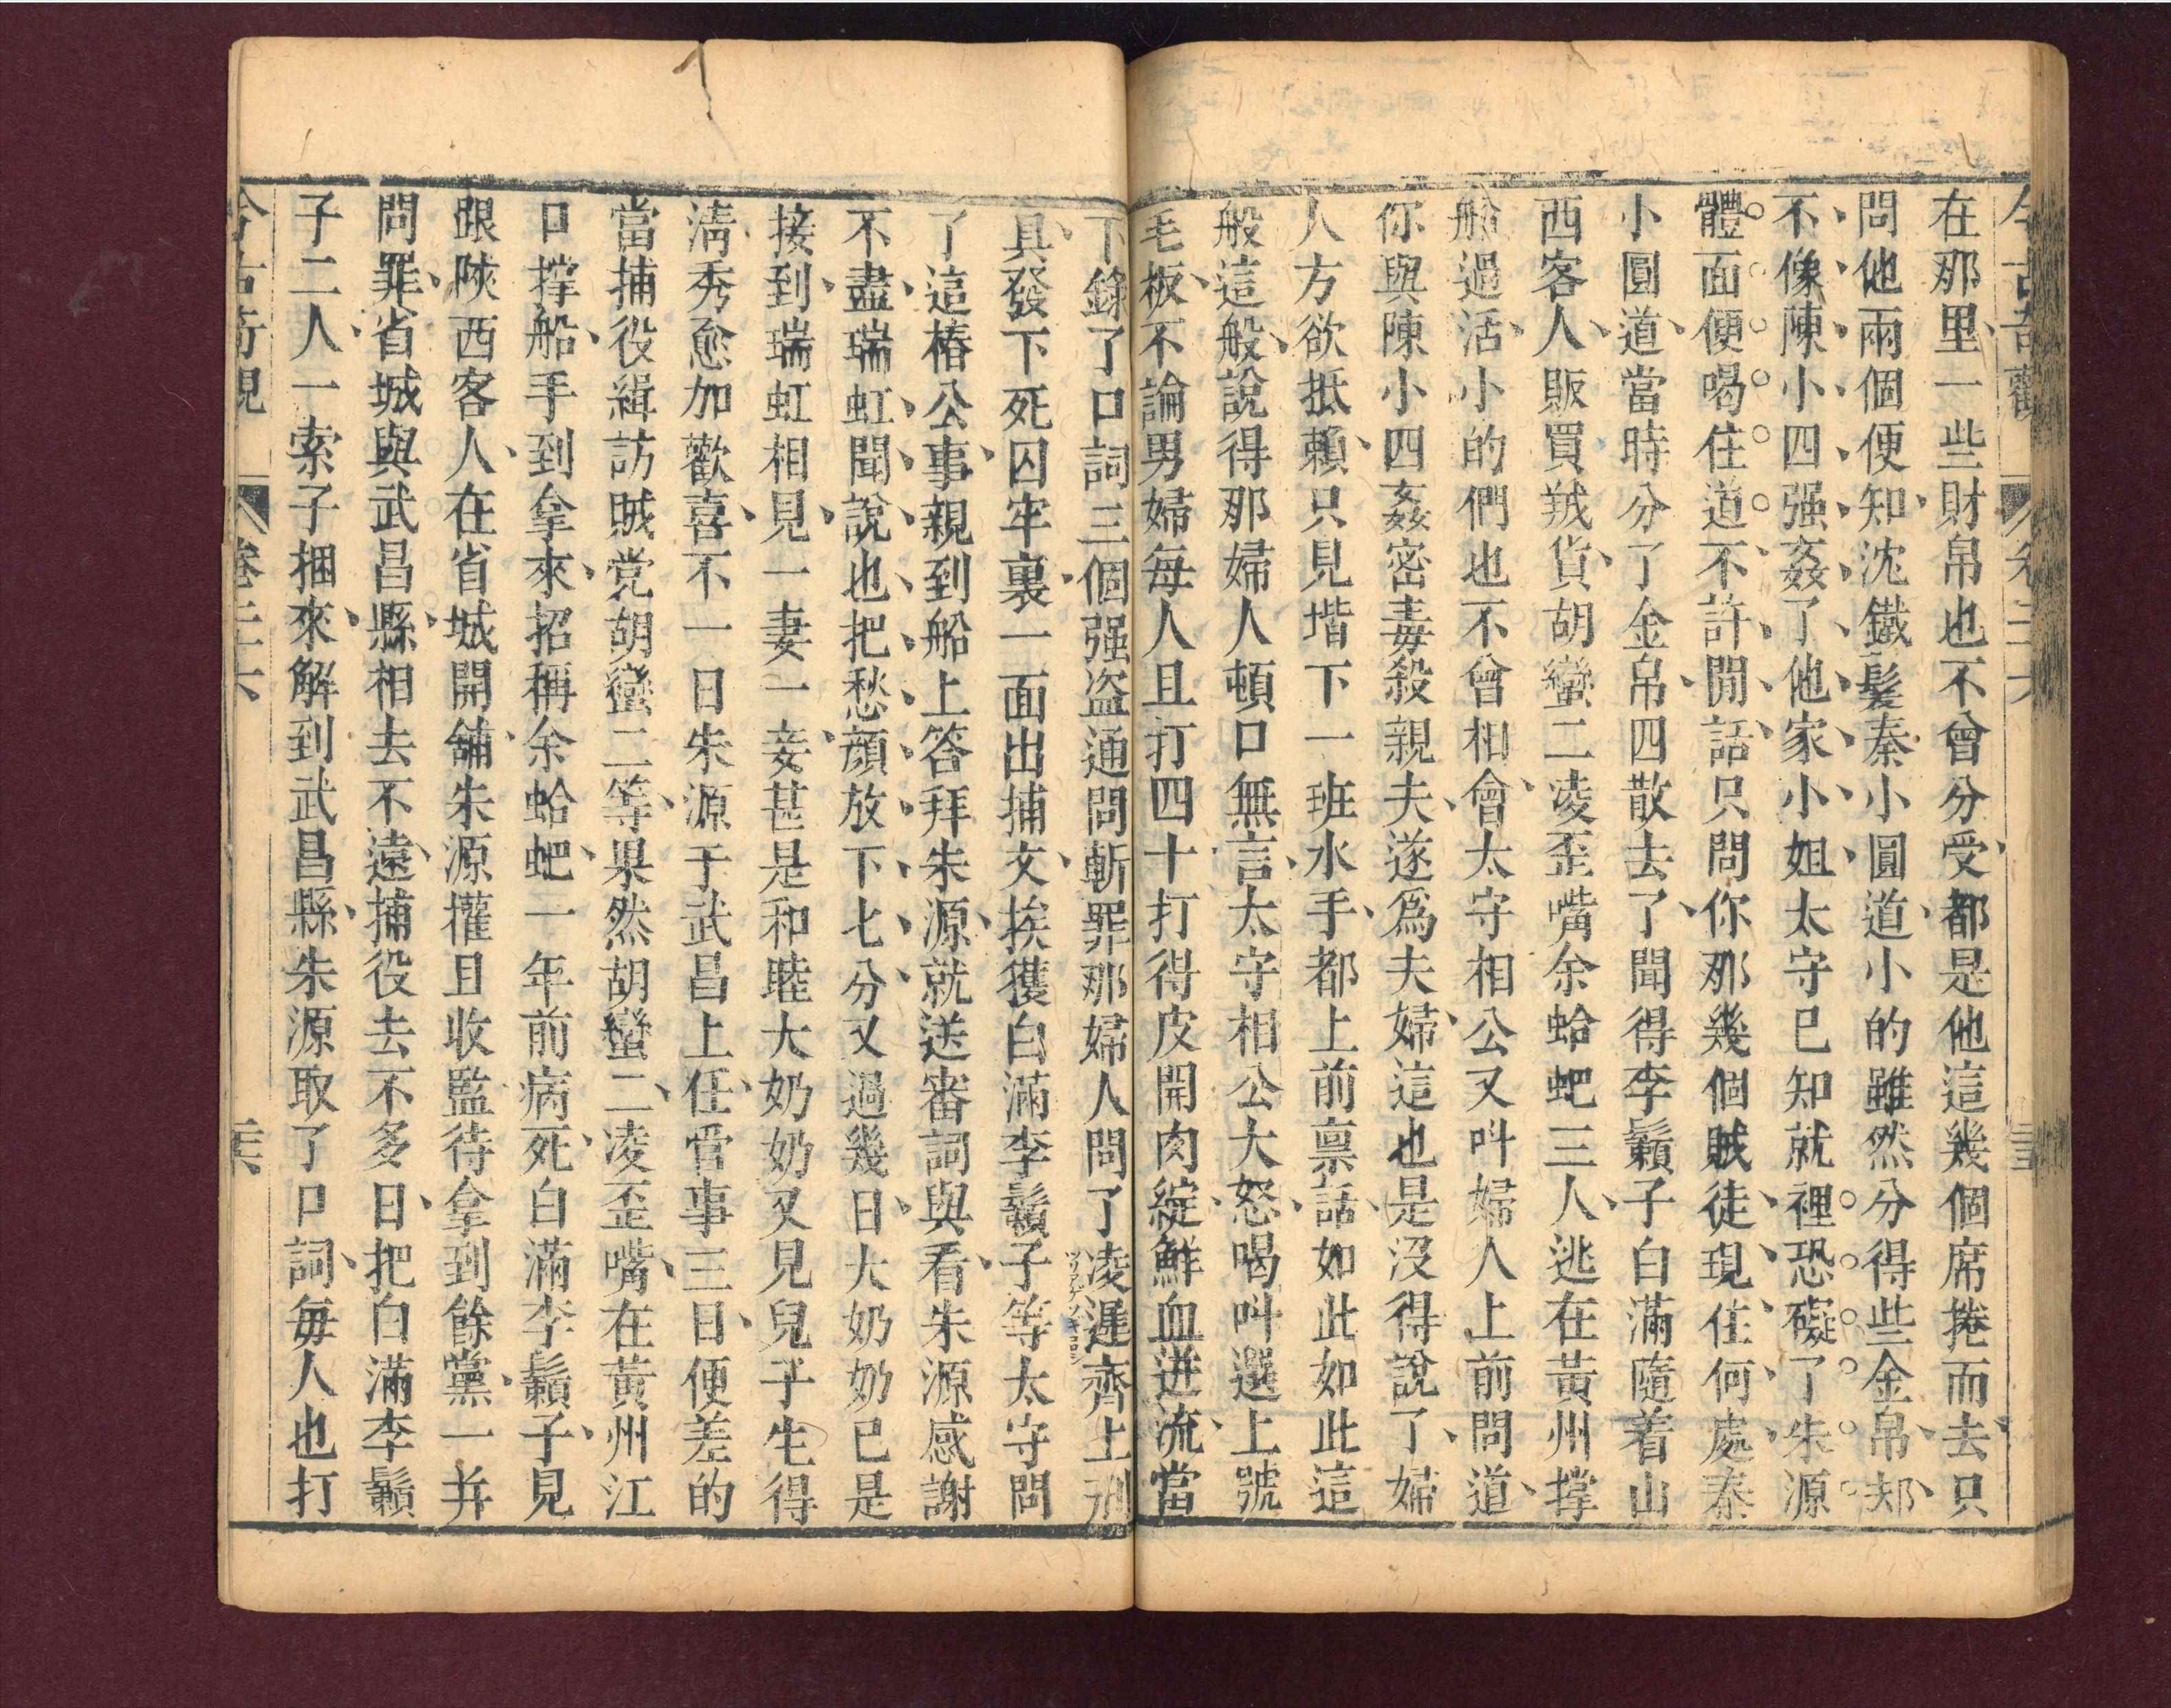 今古奇觀 卷二十六
在那里一些財帛也不曾分受都是他這幾個席捲而去只
問他兩個便知沈鐵甏秦小圓道小的雖然分得些金帛却
不像陳小四强姦了他家小姐太守已知就裡恐礙了朱源
體面便喝住道不許閒話只問你那幾個賊徒現在何處秦
小圓道當時分了金帛四散去了聞得李鬍子白滿隨着山
西客人販買羢貨胡蠻二凌歪嘴余蛤蚆三人逃在黃州撑
船過活小的們也不曾相會太守相公又叫婦人上前問道
你與陳小四姦密毒殺親夫遂爲夫婦這也是沒得說了婦
人方欲抵賴只見堦下一班水手都上前禀話如此如此這
般這般說得那婦人頓口無言太守相公大怒喝叫選上號
毛板不論男婦每人且打四十打得皮開肉綻鮮血迸流當
下錄了口詞三個强盜通問斬罪那婦人問了凌遲齊上刑
具發下死囚牢裏一面出捕文挨獲白滿李鬍子等太守問
了這樁公事親到船上答拜朱源就送審詞與看朱源感謝
不盡瑞虹聞說也把愁顏放下七分又過幾日大奶奶已是
接到瑞虹相見一妻一妾甚是和睦大奶奶又見兒子生得
淸秀愈加歡喜不一日朱源于武昌上任管事三日便差的
當捕役緝訪賊党胡蠻二等果然胡蠻二凌歪嘴在黃州江
口撑船手到拿來招稱余蛤蚆一年前病死白滿李鬍子見
跟陝西客人在省城開舖朱源權且收監待拿到餘黨一并
問罪省城與武昌縣相去不遠捕役去不多日把白滿李鬍
子二人一索子捆來解到武昌縣朱源取了口詞每人也打
今古奇觀 卷二十六 二十六